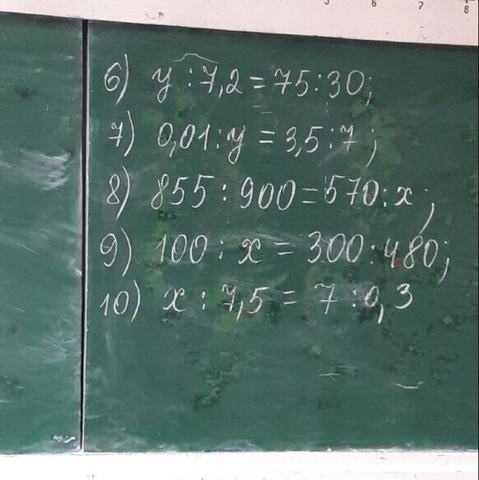 6) y : 7,2 = 75 : 30;
7) 0,01 : y = 3,5 : 7;
8) 855 : 900 = 570 : x;
9) 100 : x = 300 : 480;
10) x : 7,5 = 7 : 0,3